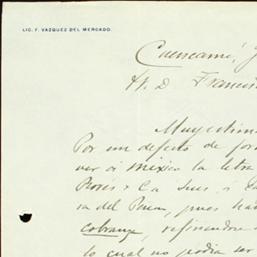 LIC. F. VAZQUEZ DEL MERCADO.
Cuencamé,
Sr. D Francis
Muy estim
Por un defecto de for
ver á México la letra
Ca Sucs.
va del pues has
cobranza, refiriendose
lo cual no podia ser